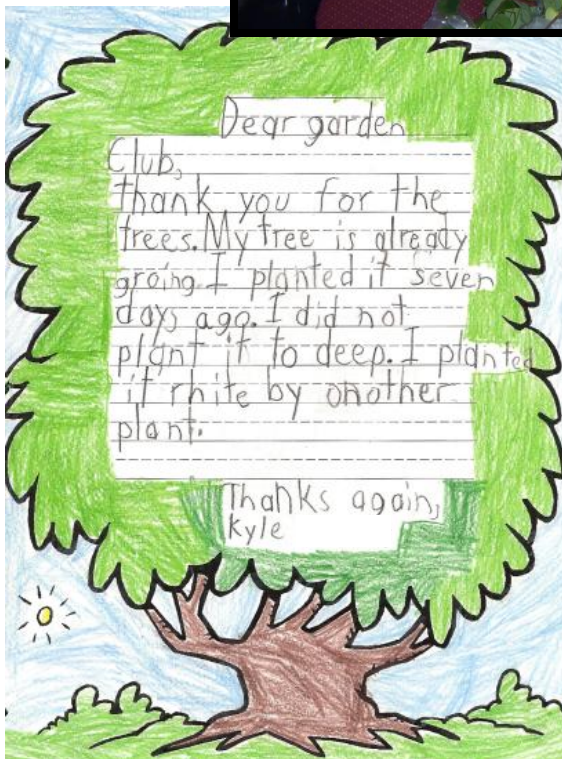 Dear garden
Club,
thank you for the
trees. My tree is alreaty
groing. I planted it seven
days ago. I did not
plant it to deep. I planted
it rhite by onother
plant.
Thanks again,
Kyle